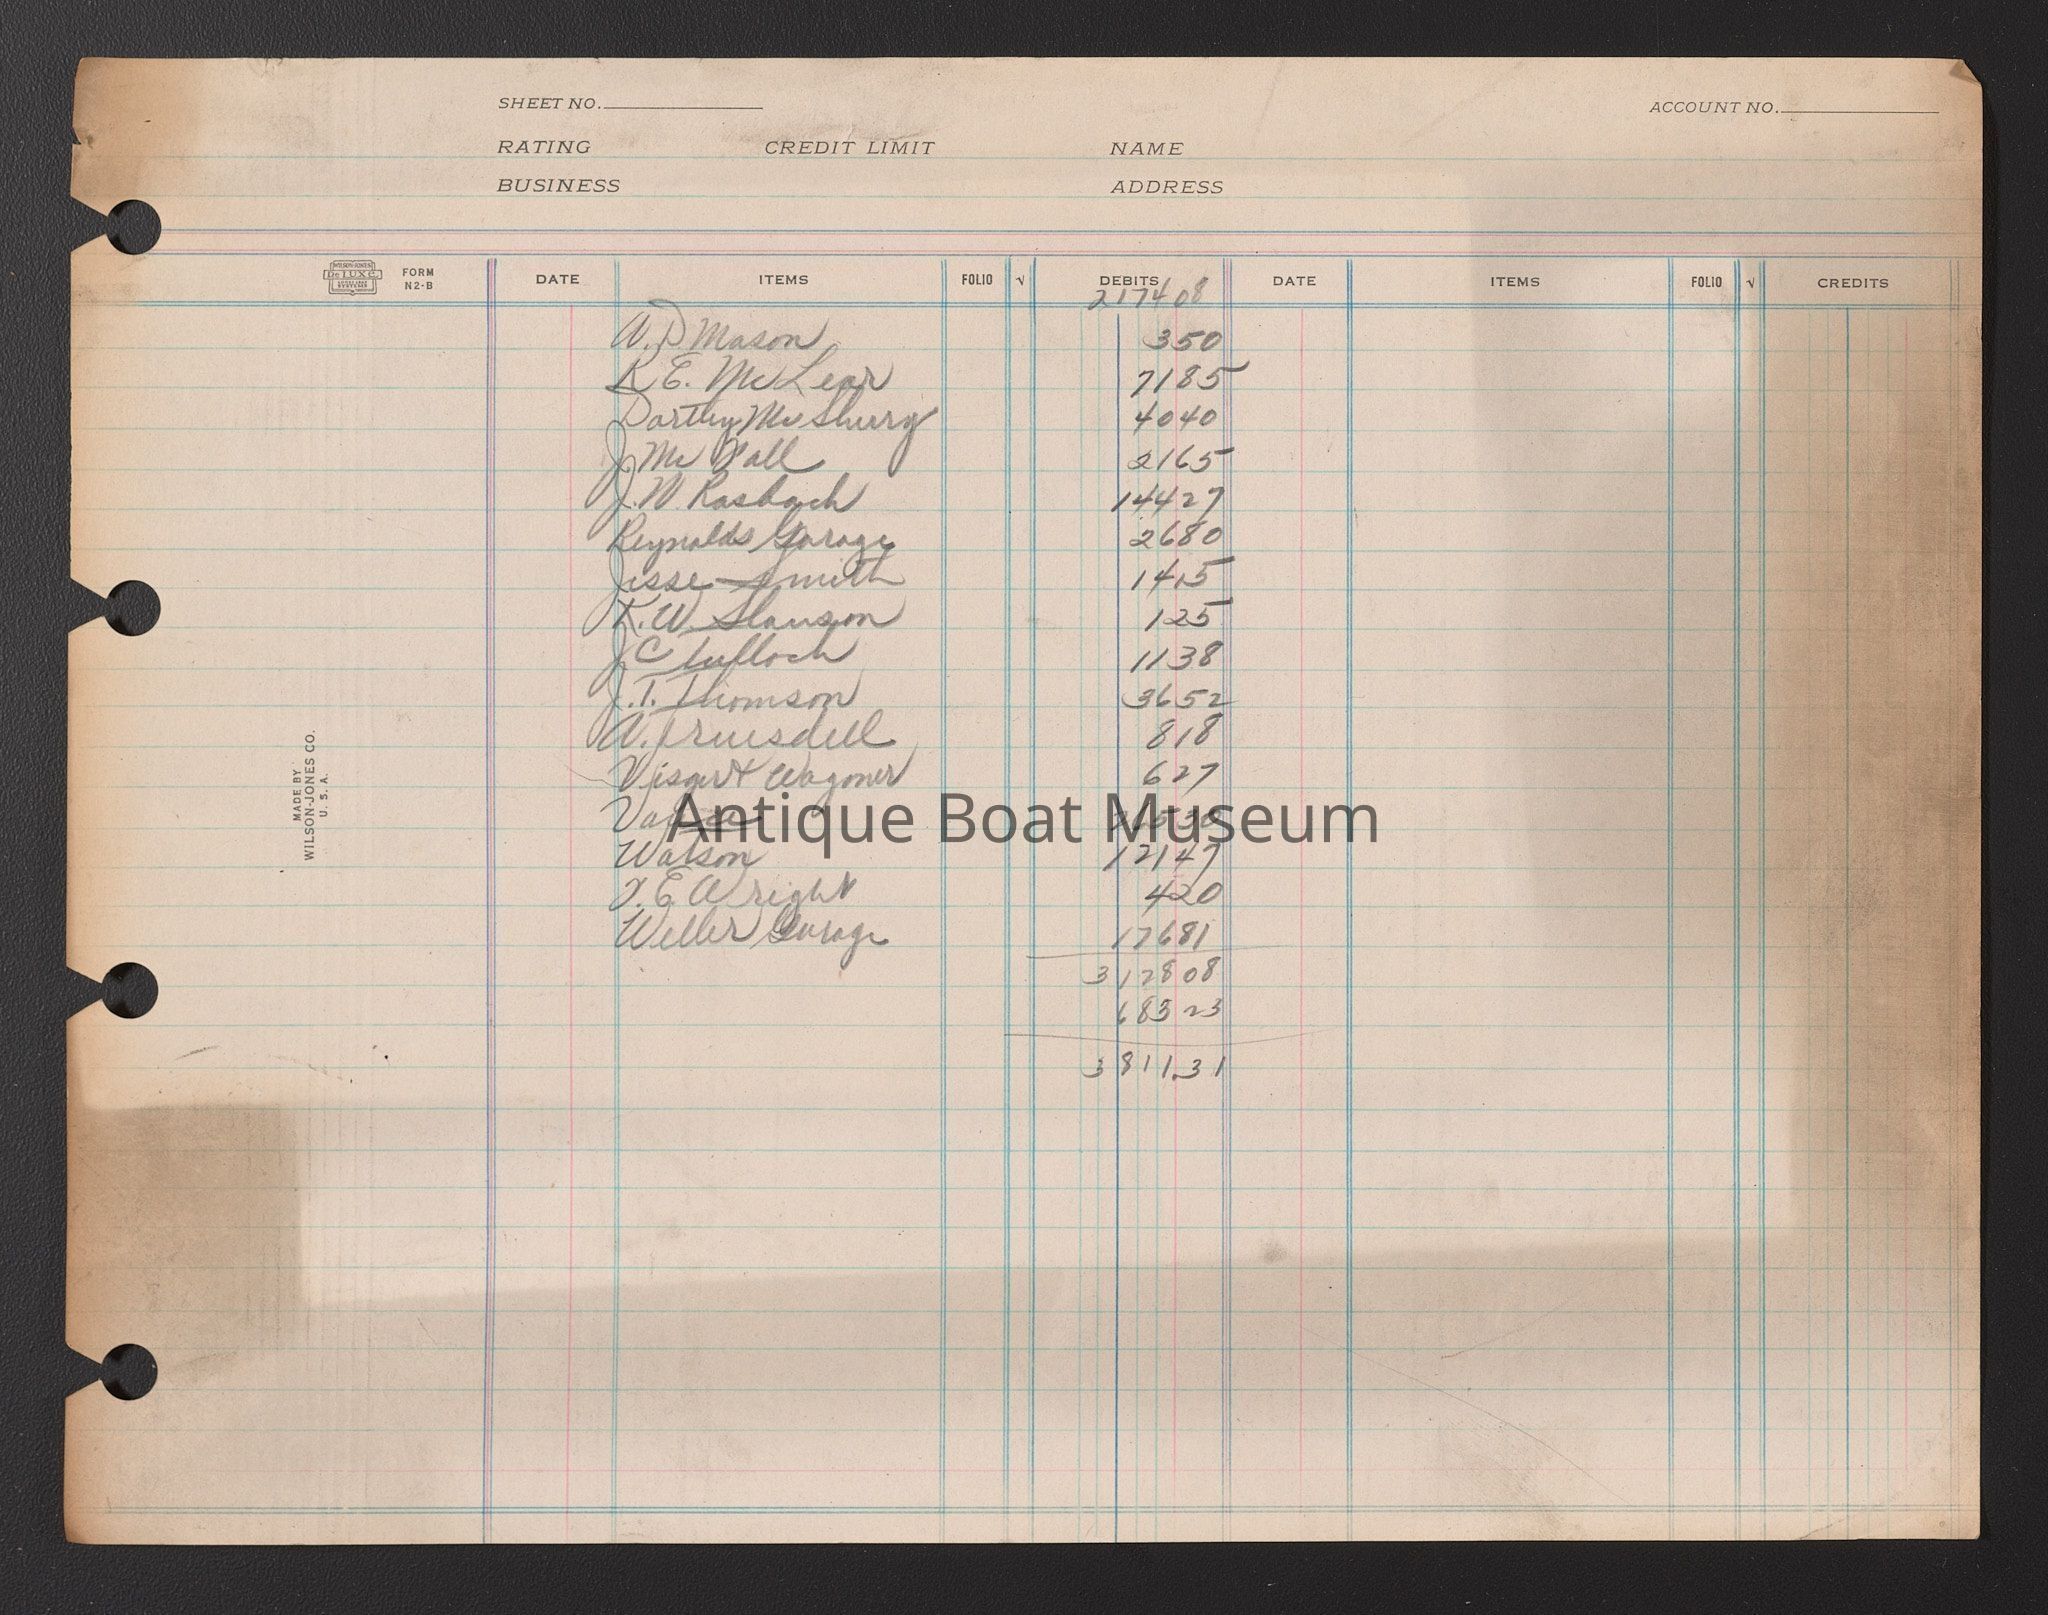 SHEET NO.
ACCOUNT NO.
RATING CREDIT LIMIT NAME
BUSINESS ADDRESS
WILSON-JONES
De LUXE
FORM
N2-B
DATE ITEMS FOLIO √ DEBITS DATE ITEMS FOLIO √ CREDITS
217408
W. D Mason 350
R E. McLear 7185
McSherry 4040
J Mc Nall 2165
J. W. Rasbach 14427
Reynolds Garage 2680
Jesse Smith 1415
K. W. Slawson 125
J C Tulloch 1138
J. T. Thomson 3652
W. Truesdell 818
Visgert Wagoner 627
26530
Watson 12147
E Wright 420
Weller Garage 17681
312808
68323
381131
MADE BY
WILSON-JONES CO.
U. S. A.
Antique Boat Museum